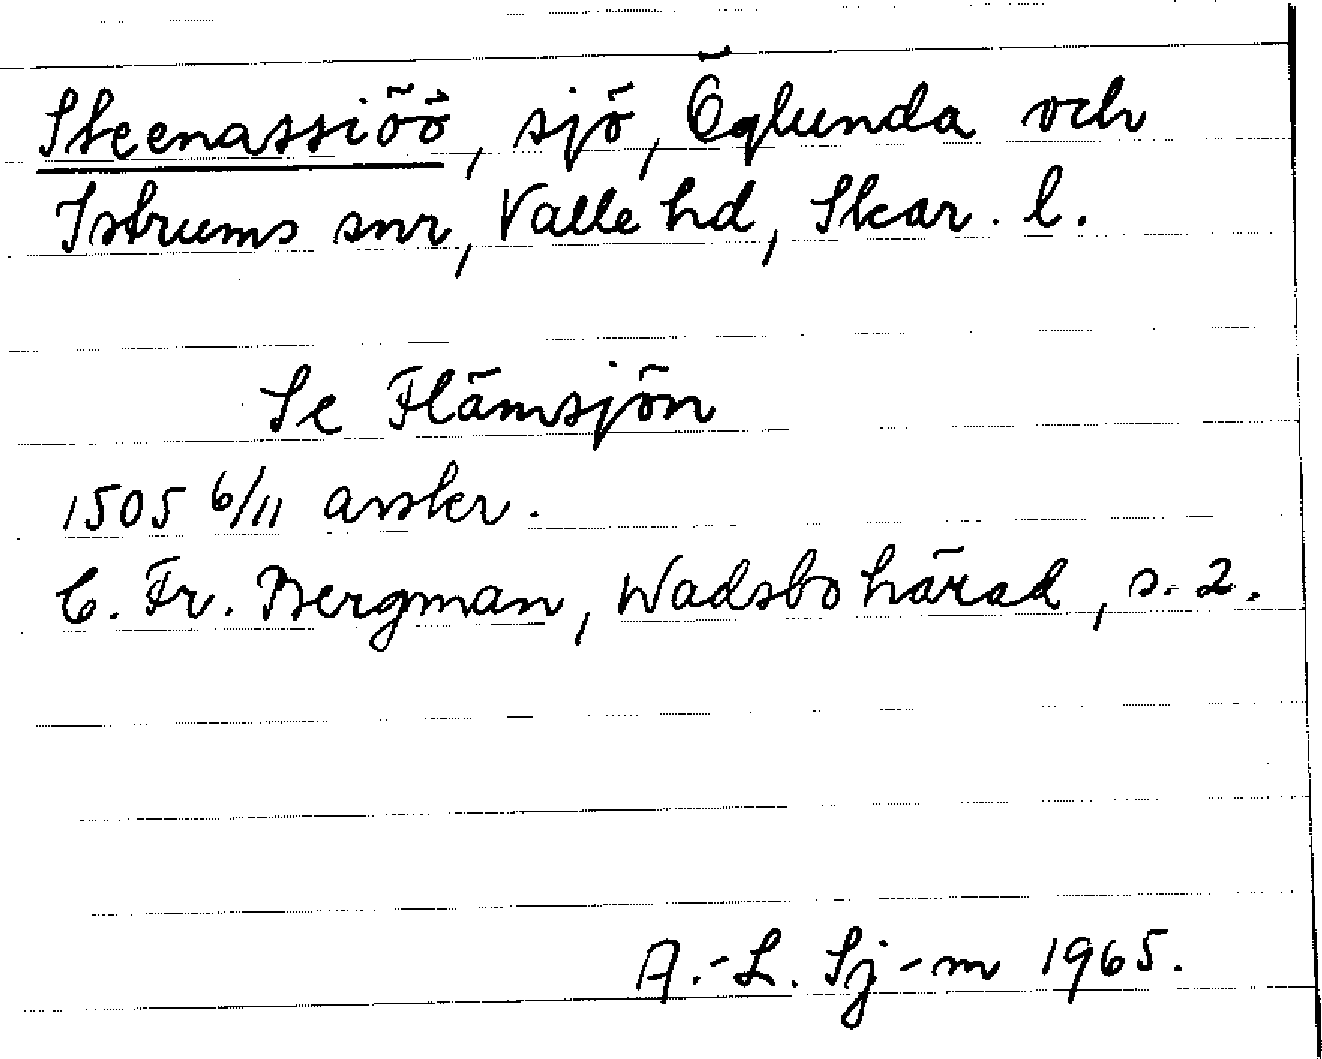 Skeenassiöö, sjö, Öglunda och
Istrums snr, Valle hd, Skar. l.
Se Flämsjön
1505 6/11 avskr.
C. Fr. Bergman, Wadsbo härad, s. 2.
A.-L. Sj-m 1965.